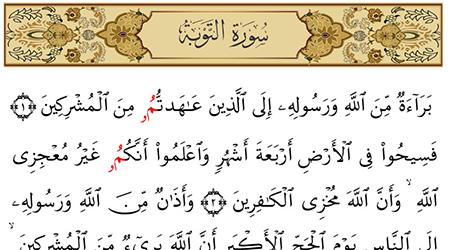 سُورَةُ التَّوْبَةِ
بَرَآءَةٌ مِّنَ اللَّهِ وَرَسُولِهِۦٓ إِلَى الَّذِينَ عَـٰهَدتُّمُۥ مِنَ الْمُشْرِكِينَ ﴿١﴾
فَسِيحُوا فِى الْأَرْضِ أَرْبَعَةَ أَشْهُرٍ وَاعْلَمُوٓا أَنَّكُمُۥ غَيْرُ مُعْجِزِى
اللَّهِ ۙ وَأَنَّ اللَّهَ مُخْزِى الْكَـٰفِرِينَ ﴿٢﴾ وَأَذَٰنٌ مِّنَ اللَّهِ وَرَسُولِهِۦٓ
إِلَى النَّاسِ يَوْمَ الْحَجِّ الْأَكْبَرِ أَنَّ اللَّهَ بَرِىٓءٌ مِّنَ الْمُشْرِكِينَ ۙ